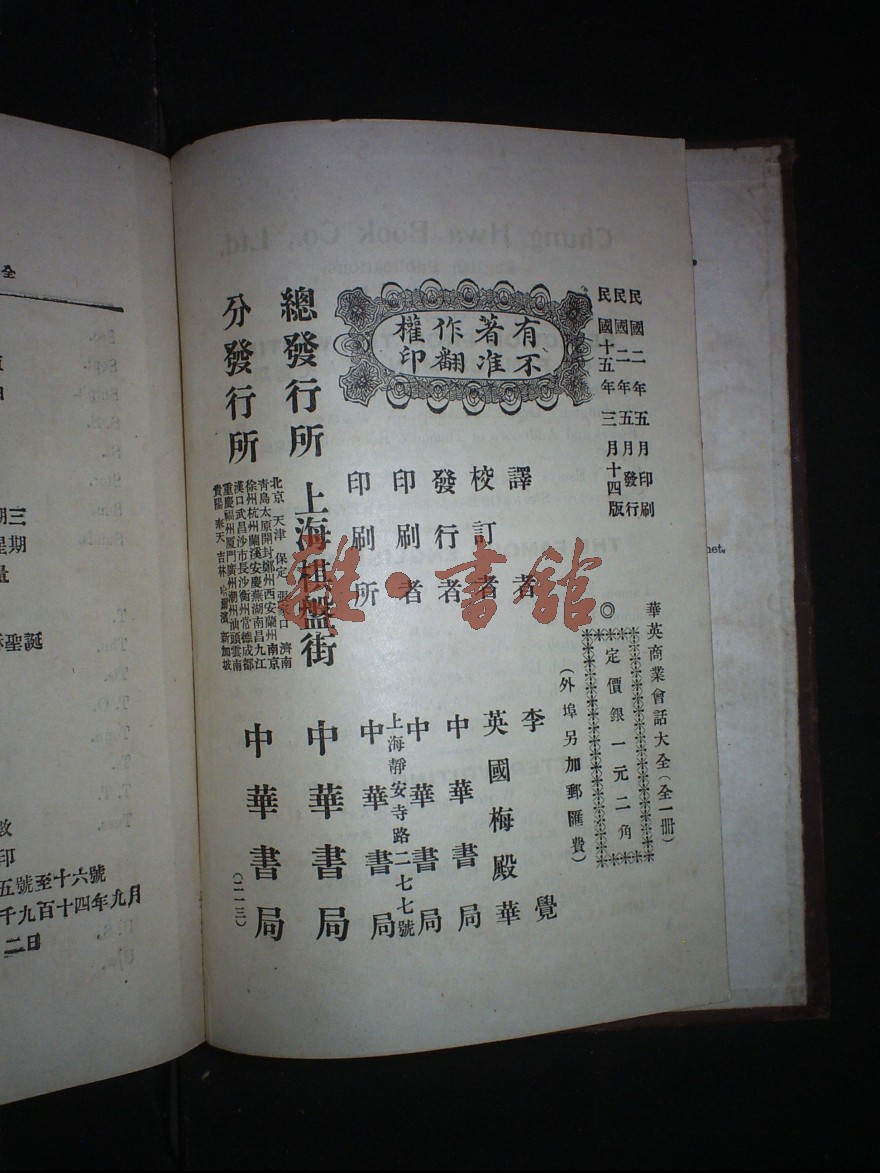 民國二年五月印刷
民國二年五月發行
民國十五年三月十四版
有著作權
不准翻印
華英商業會話大全(全一冊)
◎定價銀一元二角
(外埠另加郵匯費)
譯者 李覺
校訂者 英國梅殿華
發行者 中華書局
印刷者 中華書局
上海靜安寺路二七七號
印刷所 中華書局
總發行所 上海棋盤街 中華書局
分發行所
北京 天津 保定 張家口 濟南
青島 太原 開封 鄭州 西安 蘭州 南京
徐州 杭州 蘭溪 安慶 蕪湖 南昌 九江
漢口 武昌 沙市 長沙 衡州 常德 成都
重慶 福州 厦門 廣州 潮州 汕頭 雲南
貴陽 奉天 吉林 哈爾濱 新加坡
中華書局
(二一三)
雜·書館
全
期三
星期
聖誕
數
印
五號至十六號
千九百十四年九月
二日
net.
Chung Hwa Book Co., Ltd.